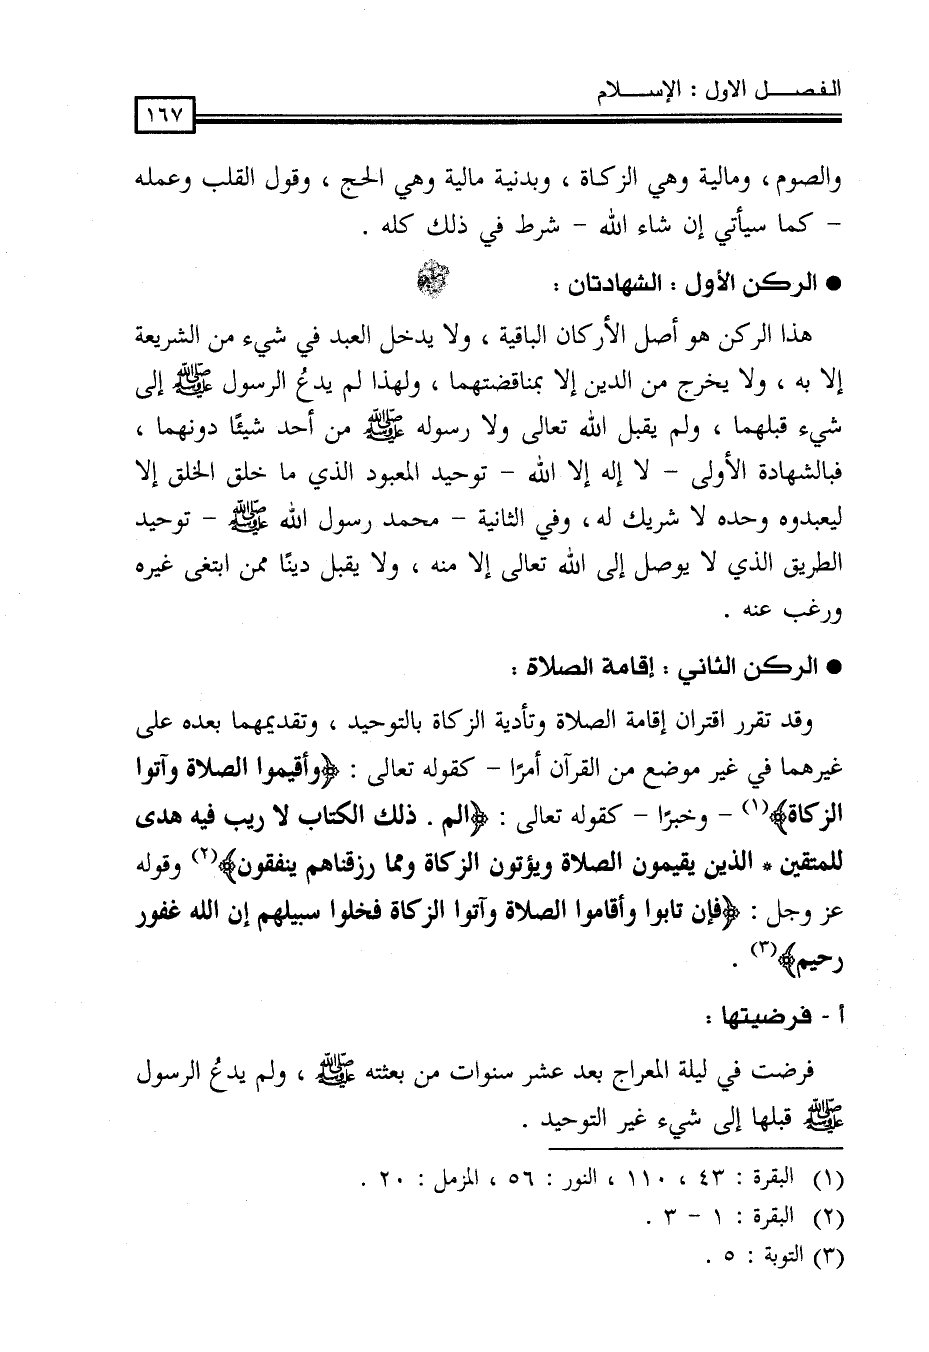 الفصل الاول : الإسلام
١٦٧
والصوم ، ومالية وهي الزكاة ، وبدنية مالية وهي الحج ، وقول القلب وعمله
– كما سيأتي إن شاء الله – شرط في ذلك كله .
● الركن الأول : الشهادتان :
هذا الركن هو أصل الأركان الباقية ، ولا يدخل العبد في شيء من الشريعة
إلا به ، ولا يخرج من الدين إلا بمناقضتهما ، ولهذا لم يدعُ الرسول ﷺ إلى
شيء قبلهما ، ولم يقبل الله تعالى ولا رسوله ﷺ من أحد شيئًا دونهما ،
فبالشهادة الأولى – لا إله إلا الله – توحيد المعبود الذي ما خلق الخلق إلا
ليعبدوه وحده لا شريك له ، وفي الثانية – محمد رسول الله ﷺ – توحيد
الطريق الذي لا يوصل إلى الله تعالى إلا منه ، ولا يقبل دينًا ممن ابتغى غيره
ورغب عنه .
● الركن الثاني : إقامة الصلاة :
وقد تقرر اقتران إقامة الصلاة وتأدية الزكاة بالتوحيد ، وتقديمهما بعده على
غيرهما في غير موضع من القرآن أمرًا – كقوله تعالى : ﴿وأقيموا الصلاة وآتوا
الزكاة﴾(١) – وخبرًا – كقوله تعالى : ﴿الم . ذلك الكتاب لا ريب فيه هدى
للمتقين * الذين يقيمون الصلاة ويؤتون الزكاة ومما رزقناهم ينفقون﴾(٢) وقوله
عز وجل : ﴿فإن تابوا وأقاموا الصلاة وآتوا الزكاة فخلوا سبيلهم إن الله غفور
رحيم﴾(٣) .
أ - فرضيتها :
فرضت في ليلة المعراج بعد عشر سنوات من بعثته ﷺ ، ولم يدعُ الرسول
ﷺ قبلها إلى شيء غير التوحيد .
(١) البقرة : ٤٣ ، ١١٠ ، النور : ٥٦ ، المزمل : ٢٠ .
(٢) البقرة : ١ – ٣ .
(٣) التوبة : ٥ .